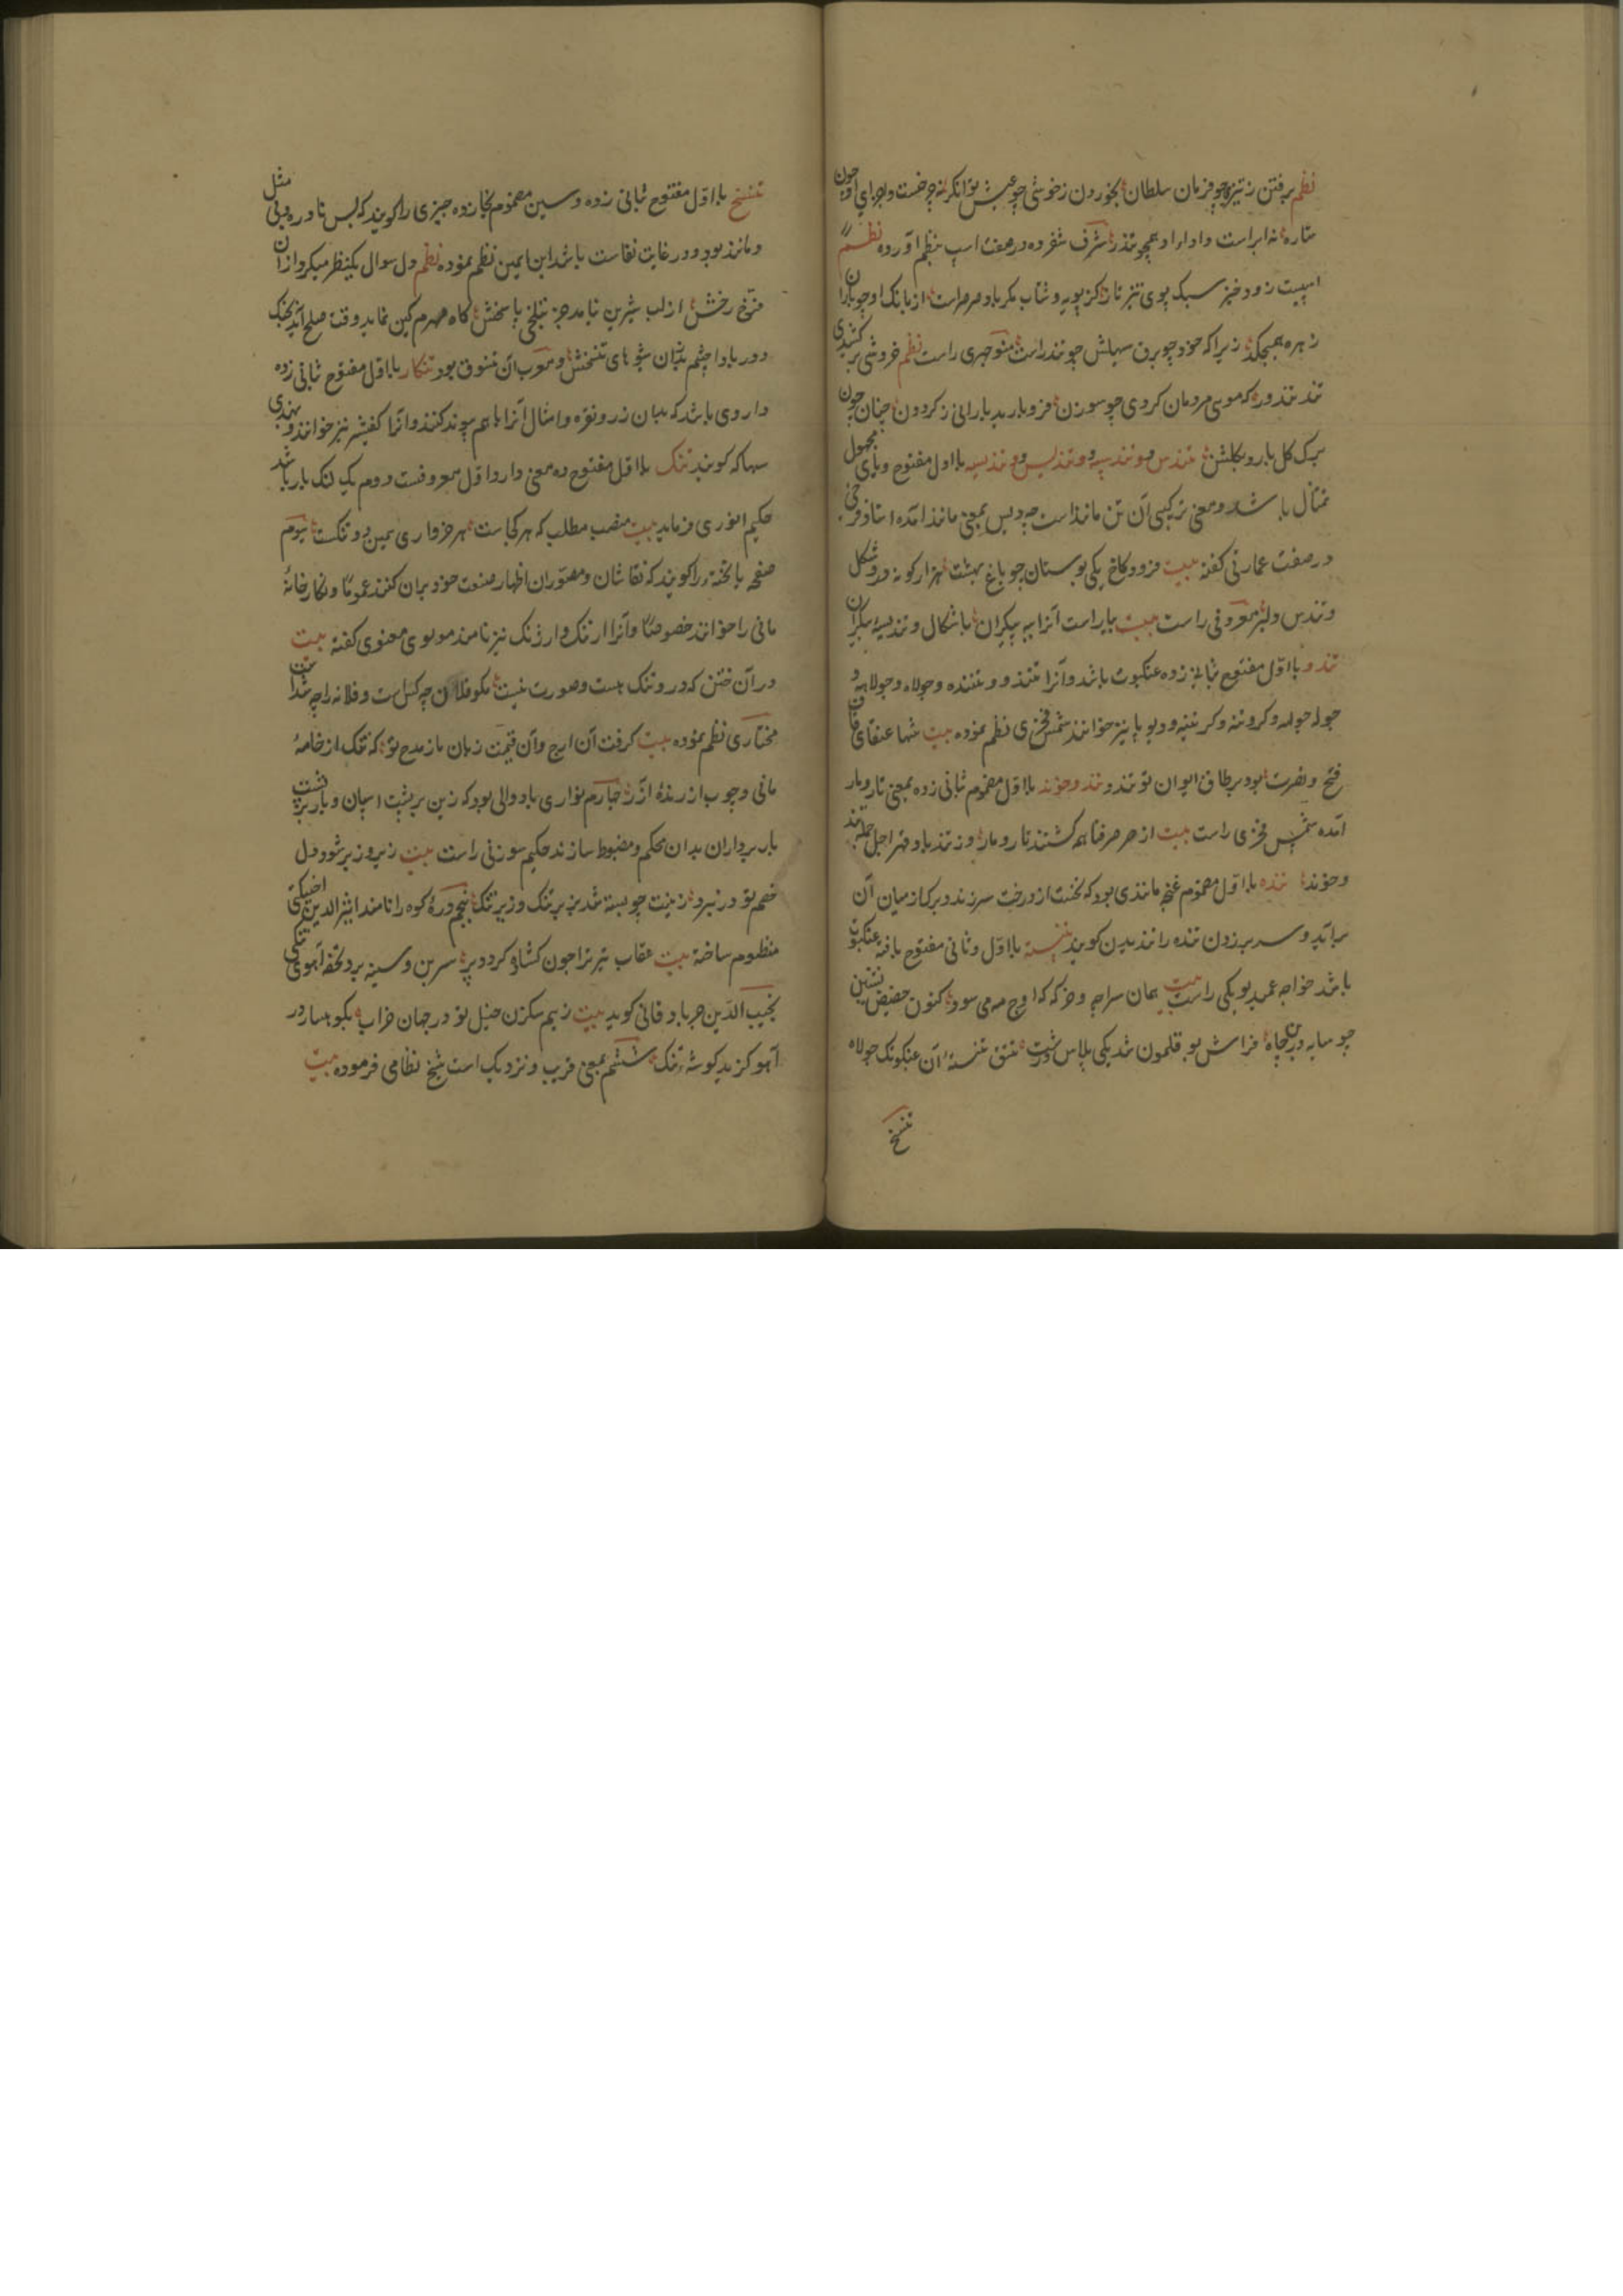 نظم برفتن ز تیزی چو فرمان سلطان بخوردن ز خوشی چو عیش توانگر نه چرخست و اجزای او چون
ستاره نه ابرست و اواز او همچو تندر شرف شفروه در صفت اسپ بنظم آورده نظم
اسپیت زود خیز سبک پوی تیز تاز کز پویه و شتاب مکر باد صرصر است از بانک او چو باران
زهره همچکد زیرا که خود چو برق سپاش چو تندر است منوچهری راست نظم خروشی بر کشیدی
تند تندر که موی مردمان کردی چو سوزن فرو بارید بارانی ز کردون چنان چون
برک کل بارد بکلشن تندس و تندسه و تندیس و تندیسه با اول مفتوح و یای مجهول
تمثال باشد و معنی ترکیبی آن تن مانند است چه دیس بمعنی مانند آمده استاد فرخی
در صفت عمارتی گفته بیت فزود کاخ یکی بوستان چو باغ بهشت هزار کونه در و شکل
و تندس دلبر معروفی راست بیت بیاراست آنرا به پیکران باشکال و تندیسه بیکران
تندو با اول مفتوح بثانی زده عنکبوت باشد و آنرا تنندو و تننده و جولاه و جولاهه و
جوله و کروتنه و کرتینه و دیوپا نیز خوانند شمس فخری نظم نموده بیت شها عنقای قاف
فتح و نصرت بود بر طاق ایوان تو تندو تند و خوند با اول مضموم ثانی زده بمعنی تار و مار
آمده شمس فخری راست بیت از صرصر فنا همه کشتند تار و مار وز تندباد قهر اجل جمله تند
و خوند تنده با اول مضموم غنچه مانندی بود که نخست از درخت سرزند و برک از میان آن
برآید و سر بر زدن تنده را تندیدن گویند تنسته با اول و ثانی مفتوح بافته عنکبوت
باشد خواجه عمید لوبکی راست بیت همان سراچه و خرکه که اوج مه می سود کنون حضیض نشین
چو سایه در بن چاه فراش بوقلمون شد یکی پلاس درشت تتق تنسته آن عنکبوتک جولاه
تنسخ
تنسخ با اول مفتوح بثانی زده و سین مضموم بخا زده چیزی را گویند که بس نادر و بی مثل
و مانند بود و در غایت نفاست باشد ابن یمین نظم نموده نظم دل سوال یکنظر میکرد از آن
فرخ رخش از لب شیرین نیامد جز بتلخی پاسخش کاه مهرم کین نماید وقت صلح آید بجنک
دور بادا چشم بد زان شیوه های تنسخش و معرب آن تنسوق بود تنکار با اول مفتوح ثانی زده
داروی باشد که بدان زر و نقره و امثال آنرا باهم پیوند کنند و آنرا کفشیر نیز خوانند و بهندی
سهاکه گویند تنک با اول مفتوح ده معنی دارد اول معروفست دوم یک لنک بار باشد
حکیم انوری فرماید بیت منصب مطلب که هر کجا هست هر خرواری بمین دو تنکست سیوم
صفحه یا تخته را گویند که نقاشان و مصوران اظهار صنعت خود بران کنند عموما و نکارخانه
مانی را خوانند خصوصا و آنرا ارتنک و ارژنک نیز نامند مولوی معنوی گفته بیت
در آن ختن که درو تنک هست و صورت نیست مکو فلان چه کس است و فلانه را چه شد است
مختاری نظم نموده بیت کرفت آن ارج و آن قیمت زبان ما ز مدح تو که تنک از خامه
مانی و چوب از رنده آزر چهارم نواری یا دوالی بود که زین بر پشت اسپان و بار بر پشت
بار برداران بدان محکم و مضبوط سازند حکیم سوزنی راست بیت زیر و زبر شود دل
خصم تو در نبرد زینت چو بسته شد بزبر تنک و زیر تنک پنجم دره کوه را نامند اثیرالدین اخسیکتی
منظوم ساخته بیت عقاب تیر ترا چون کشاده کردد پر سرین و سینه برد تحفه آهوی تنکی
نجیب الدین جربادقانی کوید بیت ز بیم سکزن خیل تو در جهان خراب بکوهسار در
آهو کزید کوشه تنک ششم بمعنی قریب و نزدیک است شیخ نظامی فرموده بیت